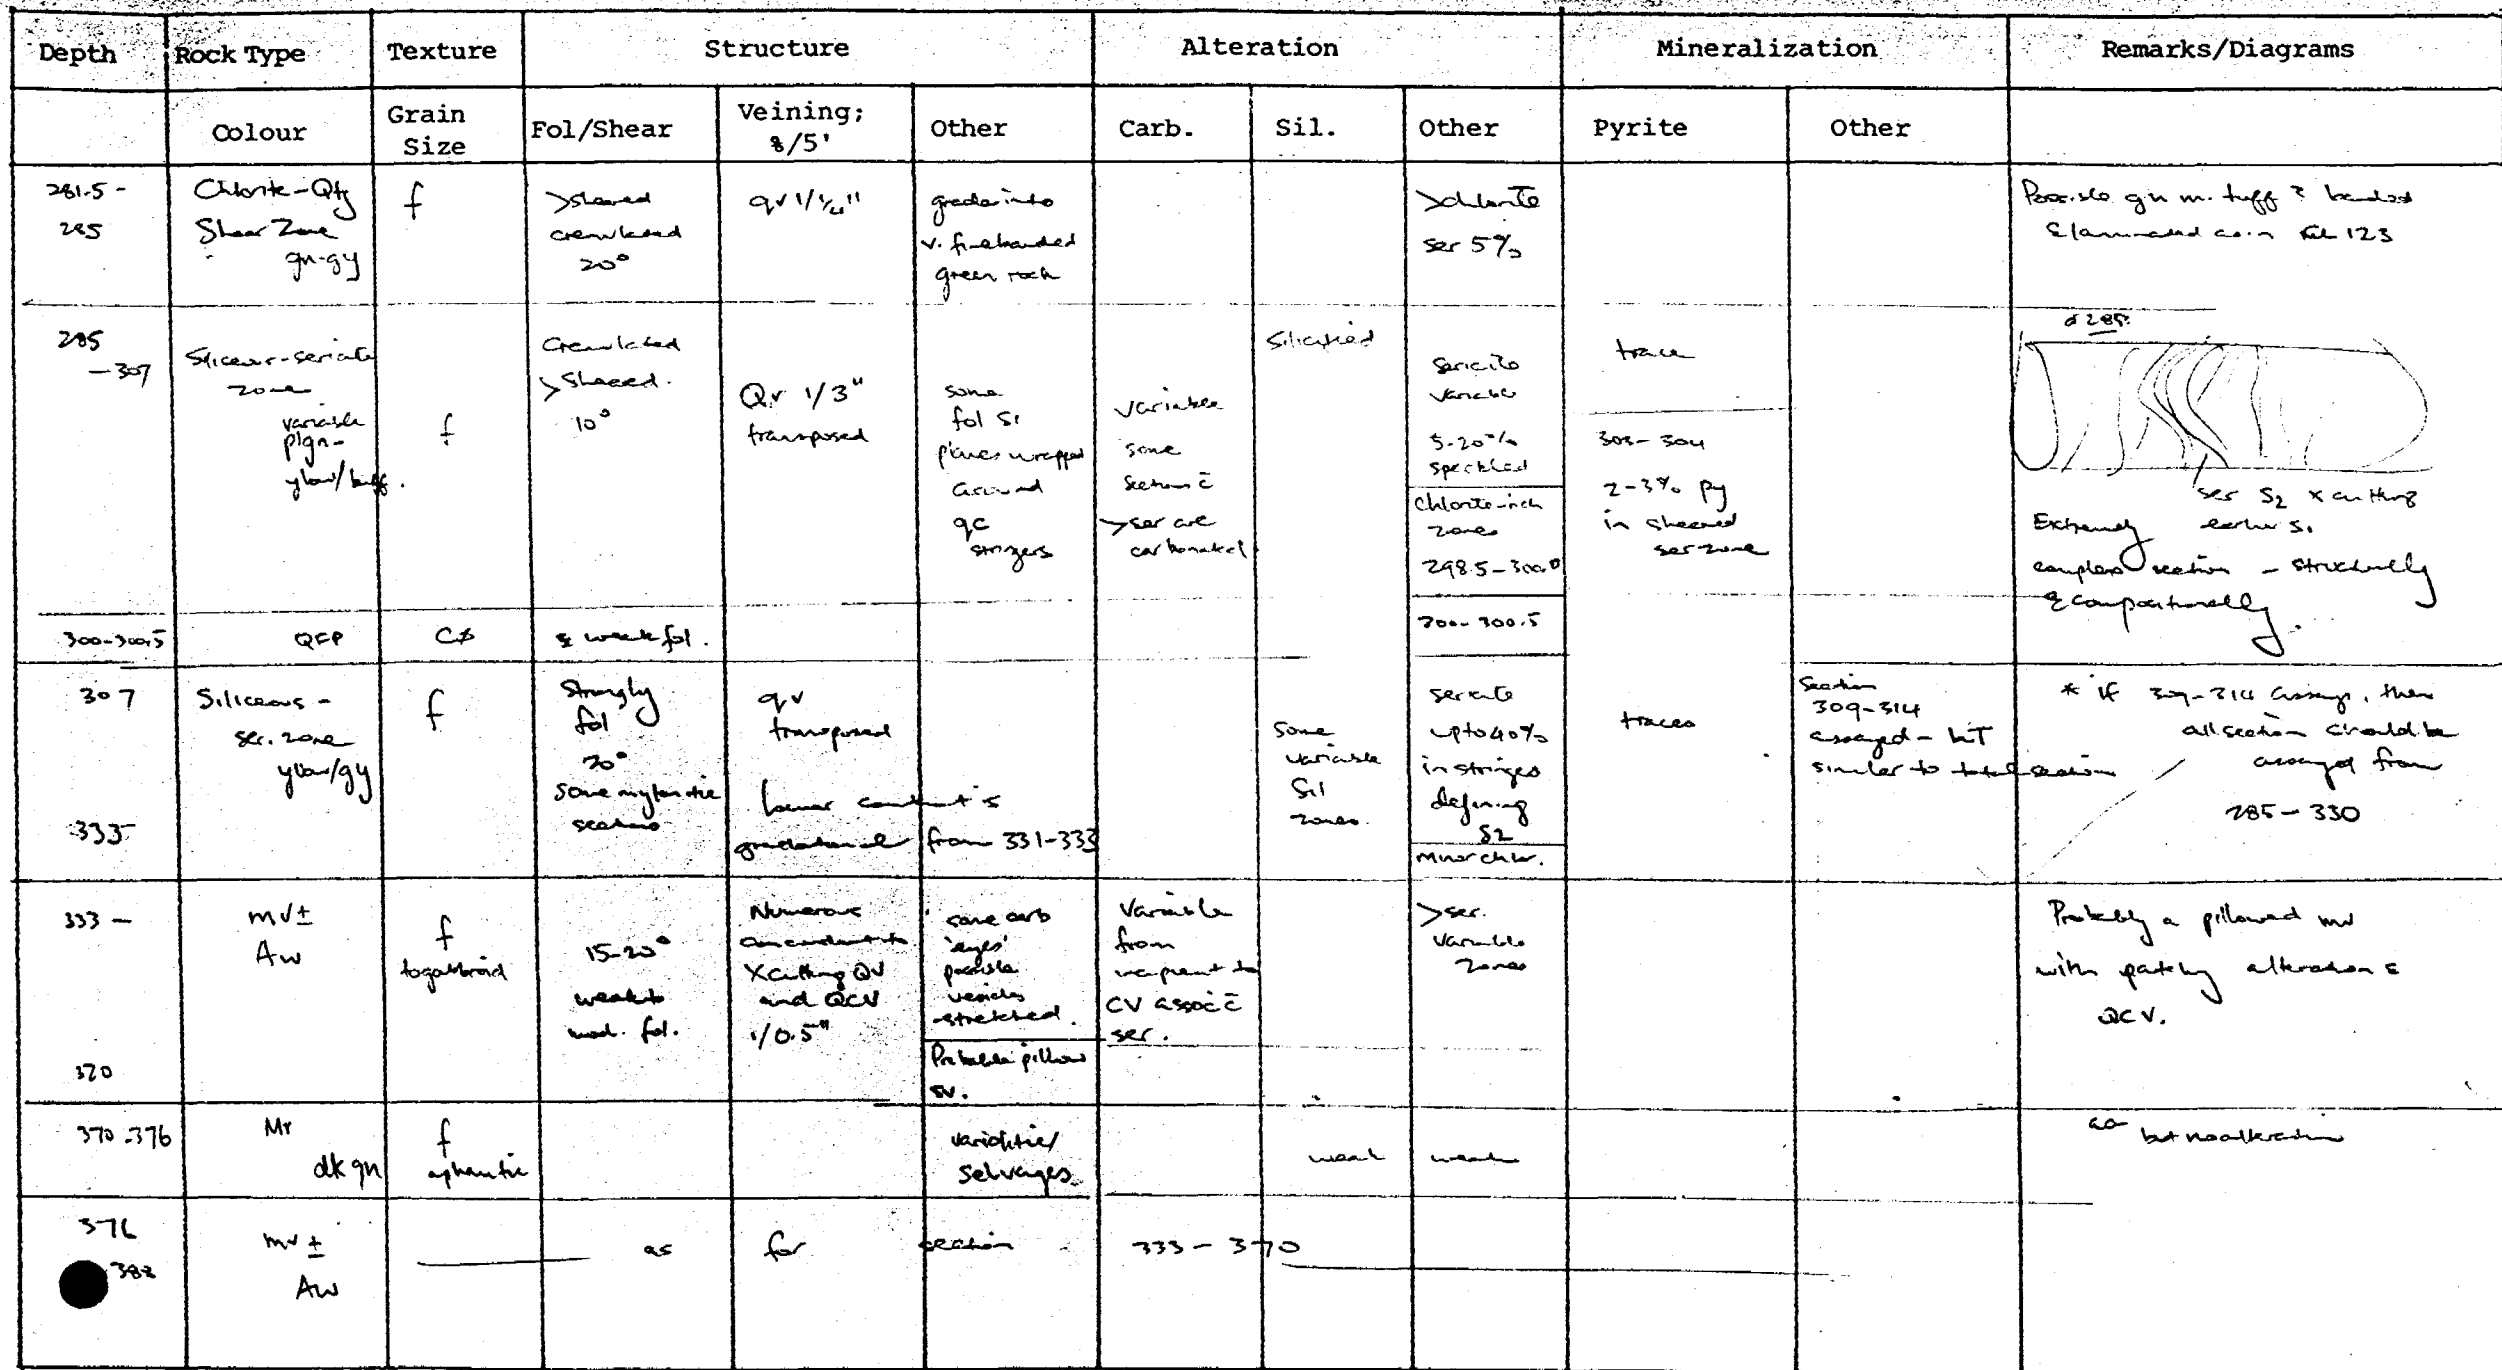 Depth Rock Type Texture Structure Alteration Mineralization Remarks/Diagrams
Colour Grain Size Fol/Shear Veining; %/5' Other Carb. Sil. Other Pyrite Other
281.5 -
285
Chlorite-Qtz
Shear Zone
gn-gy
f
>sheared
crenulated
20°
qv 1/1/4"
grades into
v. fine banded
green rock
>chlorite
ser 5%
Possible gn m. tuff ? banded
& laminated as in 123
285
-307
Siliceous-sericite
zone
variable
plgn-
ylow/buff.
f
Crenulated
>Sheared.
10°
Qv 1/3"
transposed
some
fol S1
planes wrapped
around
qc
stringers
variable
some
section c̄
>ser are
carbonated
Silicified
Sericite
variable
5-20%
speckled
Chlorite-rich
zones
298.5-300.0
trace
303-304
2-3% py
in sheared
ser zone
@ 285'
ser S2 x cutting
earlier S1
Extremely
complex section - structurally
& compositionally.
300-300.5
QFP
weak fol.
300-300.5
307
333
Siliceous -
ser. zone
ylow/gy
f
Strongly
fol
20°
Some mylonitic
sections
qv
transposed
lower contact is
gradational from 331-333
some
variable
Sil
zones.
sericite
up to 40%
in stringers
defining
S2
Minor chlr.
traces
Section
309-314
assayed -
similar to total section
* if 309-314 assays, then
all section should be
assayed from
285-330
333 -
370
mv ±
Aw
f
to gabbroid
15-20°
weak to
mod. fol.
Numerous
concordant to
Xcutting QV
and QCV
1/0.5"
some carb
'eyes'
possible
vesicles
-stretched.
Probable pillow
sv.
Variable
from
incipient to
CV assoc c̄
ser.
>ser.
variable
zones
Probably a pillowed mv
with patchy alteration &
QCV.
370-376
Mv
dk gn
f
aphanitic
variolitic/
selvages
weak
weak
aa but no alteration
376
388
mv ±
Aw
as for section 333-370